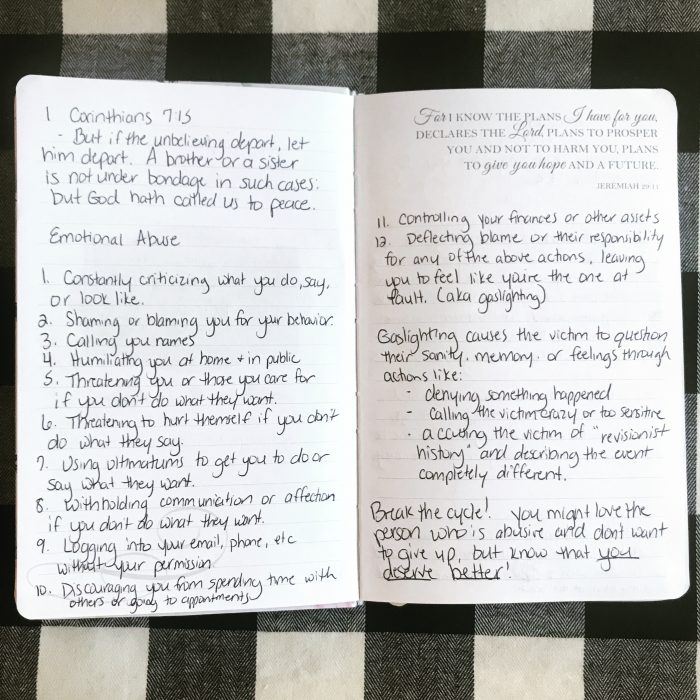 1 Corinthians 7:15
- But if the unbelieving depart, let
him depart. A brother or a sister
is not under bondage in such cases:
but God hath called us to peace.
Emotional Abuse
1. Constantly criticizing what you do, say,
or look like.
2. Shaming or blaming you for your behavior.
3. Calling you names
4. Humiliating you at home + in public
5. Threatening you or those you care for
if you don't do what they want.
6. Threatening to hurt themself if you don't
do what they say.
7. Using ultimatums to get you to do or
say what they want.
8. Withholding communication or affection
if you don't do what they want.
9. Logging into your email, phone, etc
without your permission
10. Discouraging you from spending time with
others or going to appointments
For I KNOW THE PLANS I have for you,
DECLARES THE Lord, PLANS TO PROSPER
YOU AND NOT TO HARM YOU, PLANS
TO give you hope AND A FUTURE.
JEREMIAH 29:11
11. Controlling your finances or other assets
12. Deflecting blame or their responsibility
for any of the above actions, leaving
you to feel like you're the one at
fault. (aka gaslighting)
Gaslighting causes the victim to question
their sanity, memory, or feelings through
actions like:
- denying something happened
- calling the victim crazy or too sensitive
- accusing the victim of "revisionist
history" and describing the event
completely different.
Break the cycle! you might love the
person who is abusive and don't want
to give up, but know that you
deserve better!